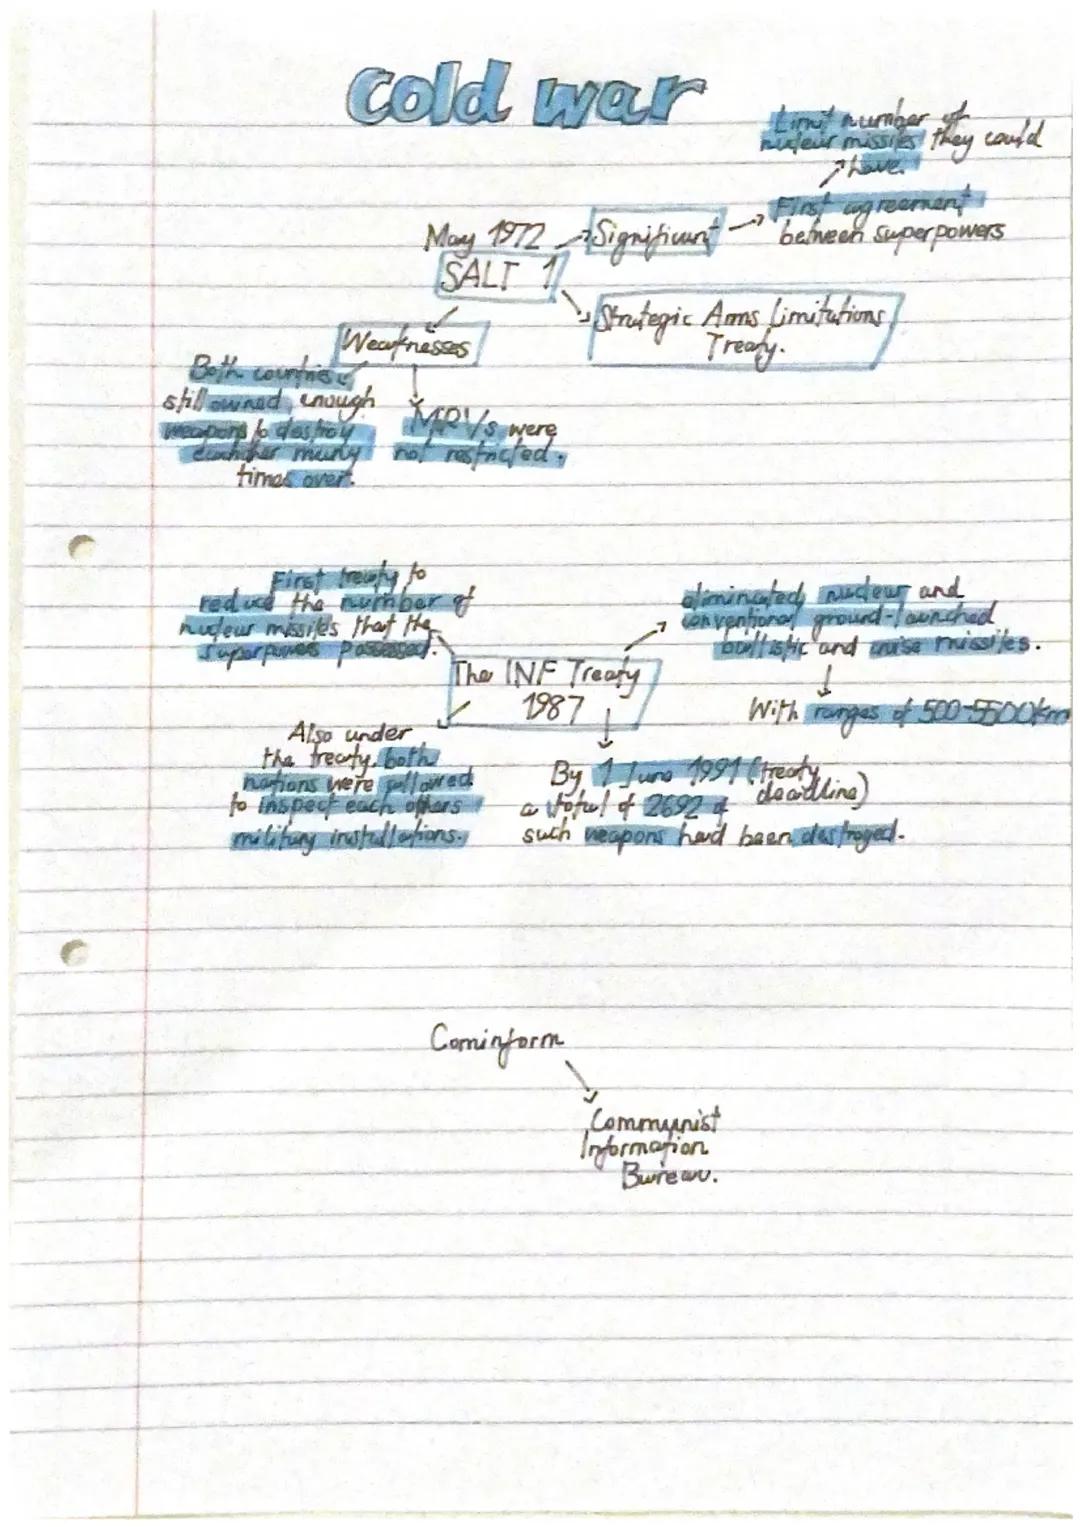 Cold war
Limit number of
nuclear missiles they could
have.
First agreement
between superpowers
May 1972
Significant
SALT 1
Strategic Arms Limitations
Treaty.
Weaknesses
Both countries
still owned enough
weapons to destroy
eachother many
times over.
MRVs were
not restricted.
First treaty to
reduce the number of
nuclear missiles that the
superpowers possessed.
eliminated nuclear and
conventional ground-launched
ballistic and cruise missiles.
With ranges of 500-5500km
The INF Treaty
1987
Also under
the treaty both
nations were allowed
to inspect each others
military installations.
By 1 June 1991 (treaty
deadline)
a total of 2692 of
such weapons had been destroyed.
Cominform
Communist
Information
Bureau.